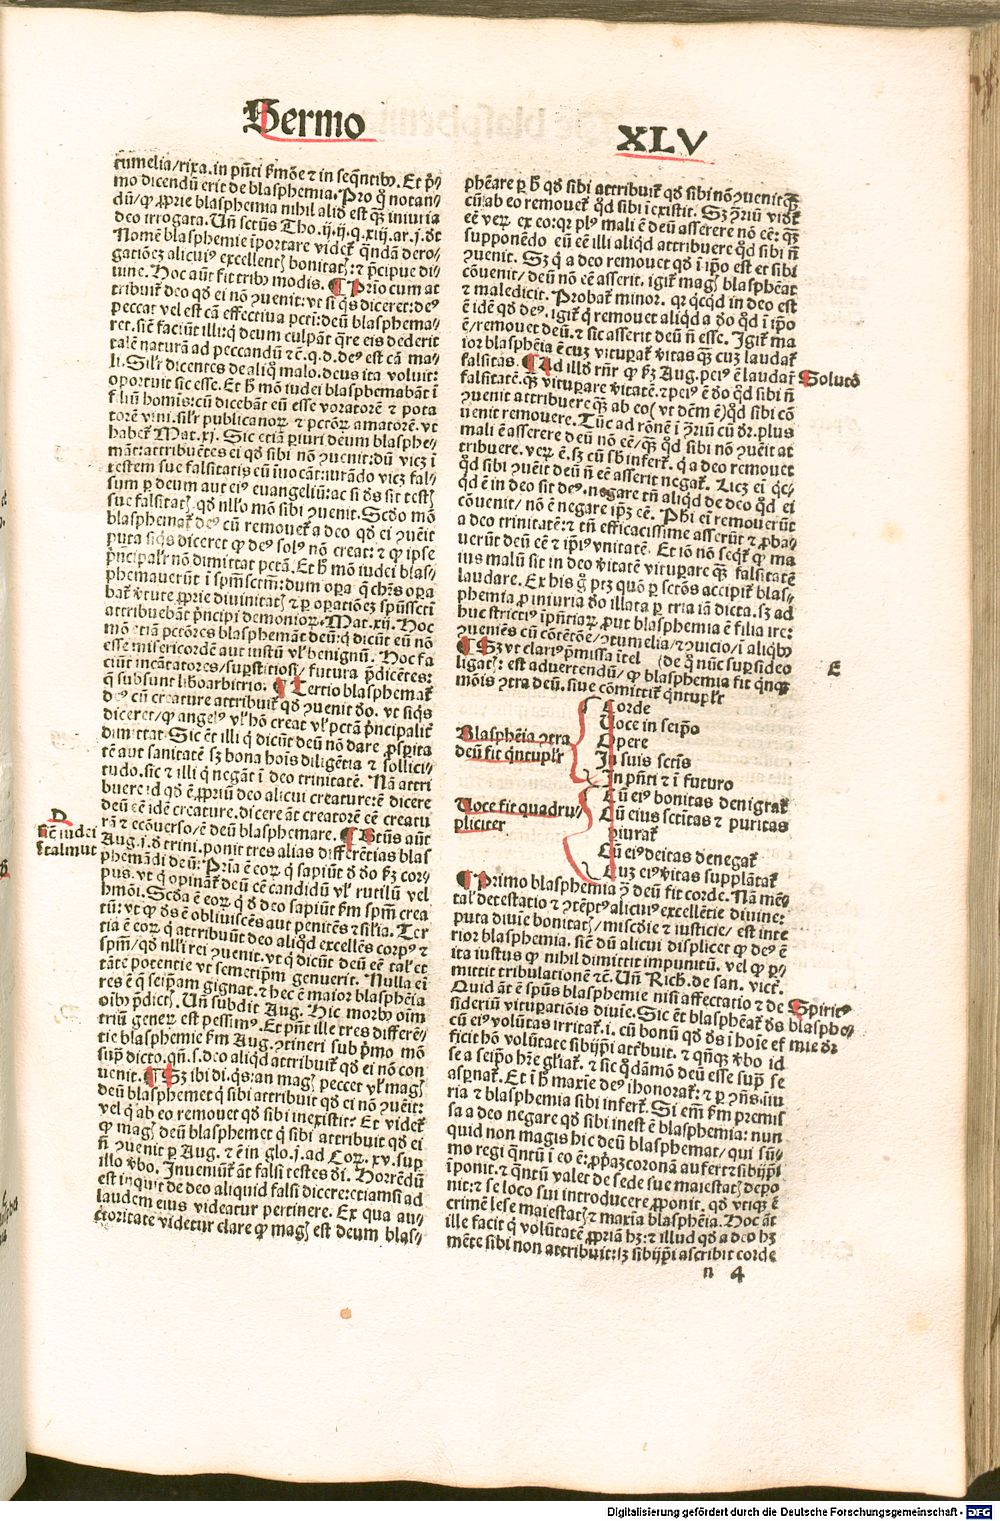 Sermo
XLV
tumelia/rixa. in pn̄ti ẜmōe ⁊ in seq̄ntibꝰ. Et p̄⸗
mo dicendū erit de blasphemia. Pro qͦ notan⸗
dū/ ꝙ ꝓprie blasphemia nihil aliđ est qꝫ iniuria
deo irrogata. Un̄ sctūs Tho. ij. ij. q. xiij. ar. j. đt
Nomē blasphemie īportare videt᷑ qͣndā dero⸗
gationē alicuiꝰ excellentꝭ bonitatꝭ: ⁊ p̄cipue di⸗
uine. Hoc aūt fit tribꝰ modis. ¶ Prio cum at
tribuit᷑ deo qđ ei nō ꝯuenit: vt si qͥs diceret: deꝰ
peccat vel est cā effectiua pcti: deū blasphema⸗
ret. sic̄ faciūt illi: qͥ deum culpāt qͣre eis dederit
talē naturā ad peccandū ⁊c̄. q. d. deꝰ est cā ma⸗
li. Silr̄ dicentes de aliqͦ malo. deus ita voluit:
oportuit sic esse. Et ħ mō iudei blasphemabāt ī
ẜ filiū homīs: cū dicebāt eū esse voratorē ⁊ pota
torē vini. silr̄ publicanoꝝ ⁊ pctōꝝ amatorē. vt
habet᷑ Mat. xj. Sic etiā ꝑiuri deum blasphe⸗
māt: attribuētes ei qđ sibi nō ꝯuenit: dū vicꝫ ī
testem sue falsitatis eū īuocāt: iurādo vicꝫ fal⸗
sum ꝑ deum aut eiꝰ euangeliū: ac si đs sit testꝭ
sue falsitatꝭ. qđ nllo mō sibi ꝯuenit. Scđo mō
blasphemat᷑ deꝰ cū remouet᷑ a deo qđ ei ꝯuēit
puta siqͥs diceret ꝙ deꝰ solꝰ nō creat: ⁊ ꝙ ipse
p̄ncipalr̄ nō dimittat pctā. Et ħ mō iudei blas⸗
phemauerūt ī spm̄sctm̄: dum opa q̄ chrs̄ opa
bat᷑ ꝟtute ꝓprie diuinitatꝭ ⁊ ꝑ opationē spūsscti
attribuebāt p̄ncipi demonioꝝ. Mat. xij. Hoc
mō etiā pctōres blasphemāt deū: qͥ dicūt eū nō
esse misericordē aut iustū vl̓ benignū. Hoc fa
ciūt incātatores/supsticiosi/ futura p̄dicētes:
q̄ subsunt libo arbitrio. ¶ Tertio blasphemat᷑
deꝰ cū creature attribuit᷑ qđ ꝯuenit đo. vt siqͥs
diceret/ ꝙ angelꝰ vl̓ hō creat vl̓ pctā p̄ncipalit᷑
dimittat. Sic ēt illi qͥ dicūt deū nō dare ꝓspita
tē aut sanitatē sꝫ bona hoīs diligētia ⁊ sollici⸗
tudo. sic ⁊ illi qͥ negāt ī deo trinitatē. Nā attri
buere id qđ ē ꝓpriū deo alicui creature: ē dicere
deū eē idē creature. dicere āt creatorē eē creatu
rā ⁊ ecōuerso/ ē deū blasphemare. ¶ Btūs aūt
Aug. j. đ trini. ponit tres alias differētias blas
phemādi deū: Pria ē eoꝝ qͥ sapiūt đ đo ẜꝫ cor⸗
pus. vt qͥ opinat᷑ deū eē candidū vl̓ rutilū vel
hmōi. Scđa ē eoꝝ qͥ đ deo sapiūt ẜm spm̄ crea
tū: vt ꝙ đs ē obliuiscēs aut penitēs ⁊ sil̓ia. Ter
tia ē eoꝝ qͥ attribuūt deo aliqđ excellēs corpꝰ ⁊
spm̄/ qđ nlli rei ꝯuenit. vt qͥ dicūt deū eē tal̓ et
tāte potentie vt semetipm̄ genuerit. Nulla ei̅
res ē q̄ seipām gignat. ⁊ hec ē maior blasphēia
oībꝰ p̄dictꝭ. Un̄ subdit Aug. Hic morbꝰ oīm
triū generꝝ est pessimꝰ. Et pn̄t ille tres differē⸗
tie blasphemie ẜm Aug. ꝯtineri sub p̄mo mō
sup̄ dicto. qn̄. s. deo aliqđ attribuit᷑ qđ ei nō con
uenit. ¶ Sꝫ ibi di. qͥs: an magꝭ peccet vl̓ magꝭ
deū blasphemet qͥ sibi attribuit qđ ei nō ꝯuēit:
vel qͥ ab eo remouet qđ sibi inexistit: Et videt᷑
ꝙ magꝭ deū blasphemet qͥ sibi attribuit qđ ei
n̄ ꝯuenit ꝑ Aug. ⁊ ē in glo. j. ad Coꝝ. xv. sup
illo ꝟbo. Inueniūt᷑ āt falsi testes đi. Horrēdū
est inquit de deo aliquid falsi dicere: etiamsi ad
laudem eius videatur pertinere. Ex qua au⸗
ctoritate videtur clare ꝙ magꝭ est deum blas⸗
D
Hēc iudei
ī talmut
phēare ꝑ ħ qđ sibi attribuit᷑ qđ sibi nō ꝯuenit qꝫ
cū ab eo remouet᷑ qđ sibi īexistit. Sꝫ ꝯriū videt᷑
eē veꝝ. ex eo: qꝛ plꝰ mali ē deū asserere nō eē: qꝫ
supponēdo eū eē illi aliqđ attribuere qđ sibi n̄
ꝯuenit. Sꝫ qͥ a deo remouet qđ ī ipo est et sibi
cōuenit/ deū nō eē asserit. igit᷑ magꝭ blasphēat
⁊ maledicit. Probat᷑ minor. qꝛ qͥcqͥd in deo est
ē idē qđ deꝰ. igit᷑ qͥ remouet aliqđ a đo qđ ī ipo
ē/ remouet deū. ⁊ sic asserit deū n̄ esse. Igit᷑ ma
ior blasphēia ē cuꝫ vitupat᷑ ꝟitas qꝫ cuꝫ laudat᷑
falsitas. ¶ Ad illđ rn̄r ꝙ ẜꝫ Aug. peiꝰ ē laudar̄
falsitatē. qꝫ vitupare ꝟitatē. ⁊ peiꝰ ē đo qđ sibi n̄
ꝯuenit attribuere qꝫ ab eo (vt dēm ē) qđ sibi cō
uenit remouere. Tūc ad rōnē ī ꝯriū cū đr. plus
mali ē asserere deū nō eē/ qꝫ qđ sibi nō ꝯuēit at
tribuere. veꝝ ē. sꝫ cū sħ infert᷑. qͥ a deo remouet
qđ sibi ꝯuēit deū n̄ eē asserit negat᷑. Licꝫ ei̅ qͥc⸗
qđ ē in deo sit deꝰ. negare tn̄ aliqđ de deo qđ ei
cōuenit/ nō ē negare ipꝫ eē. Phi ei̅ remouerūt
a deo trinitatē: ⁊ tn̄ efficacissime asserūt ⁊ ꝓba⸗
uerūt deū eē ⁊ ipiꝰ vnitatē. Et iō nō seqͥt᷑ ꝙ ma
ius malū sit in deo ꝟitatē vitupare qꝫ falsitatē
laudare. Ex his gͦ ptꝫ quō ꝑ sctōs accipit᷑ blas⸗
phemia ꝓ iniuria đo illata ꝑ tria iā dicta. sꝫ ad
huc strictiꝰ īpn̄tiaꝝ. ꝓut blasphemia ē filia ire:
ꝯueniēs cū cōtētōe/ ꝯtumelia/ ⁊ ꝯuicio/ ī aliqbꝰ
¶ Sꝫ vt clariꝰ p̄missa ītel (de qͦ nūc supsideo
ligatꝭ: est aduertendū/ ꝙ blasphemia fit qͥnqꝫ
mōis ꝯtra deū. siue cōmittit᷑ qͥntuplr̄
Blasphēia ꝯtra
deū fit qͥntuplr̄
Corde
Uoce in seipo
Opere
In suis sctīs
In pn̄ti ⁊ ī futuro
Uoce fit quadru⸗
pliciter
Cū eiꝰ bonitas denigrat᷑
Cū eius sctītas ⁊ puritas
ꝑiurat᷑
Cū eiꝰ deitas denegat᷑
Cuꝫ eiꝰ ꝟitas supplātat᷑
¶ Primo blasphemia ꝯ̄ deū fit corde. Nā mē⸗
tal̓ detestatio ⁊ ꝯtēptꝰ alicuiꝰ excellētie diuine:
puta diuīe bonitatꝭ/ miscđie ⁊ iusticie/ est inte
rior blasphemia. sic̄ dū alicui displicet ꝙ deꝰ ē
ita iustus ꝙ nihil dimittit impunitū. vel ꝙ ꝑ⸗
mittit tribulationē ⁊c̄. Un̄ Rich. de san. vict.
Quid āt ē spūs blasphemie nisi affectatio ⁊ de
sideriū vitupatiōis diuīe. Sic ēt blasphēat᷑ đs
cū eiꝰ volūtas irritat᷑. i. cū bonū qđ đs ī hoīe ef
ficit hō volūtate sibijpi attͥbuit. ⁊ qn̄qꝫ ꝟbo id
se a seipo hr̄e gl̓iat᷑. ⁊ sic qͦdāmō deū esse sup̄ se
aspnat᷑. Et ī ħ maxie deꝰ ihonorat᷑: ⁊ ꝑ ꝯn̄s iiu
ria ⁊ blasphemia sibi infert᷑. Si em̄ ẜm premis
sa a deo negare qđ sibi inest ē blasphemia: nun
quid non magis hic deū blasphemat/ qui sū⸗
mo regi qͣntū ī eo ē: ꝓpāꝫ coronā aufert ⁊ sibijpi
īponit. ⁊ qͣntū valet de sede sue maiestatꝭ depo
nit: ⁊ se loco sui introducere ꝓponit. qđ vtiqꝫ ē
crimē lese maiestatꝭ ⁊ maxīa blasphēia. Hoc āt
ille facit qͥ volūtatē ꝓpriā hꝫ: ⁊ illud qđ a deo hꝫ
mēte sibi non attribuit: iꝫ sibijpi ascribit corde
Solutō
E
Spiritꝰ
blasphe⸗
mie đr
n 4
Digitalisierung gefördert durch die Deutsche Forschungsgemeinschaft - DFG